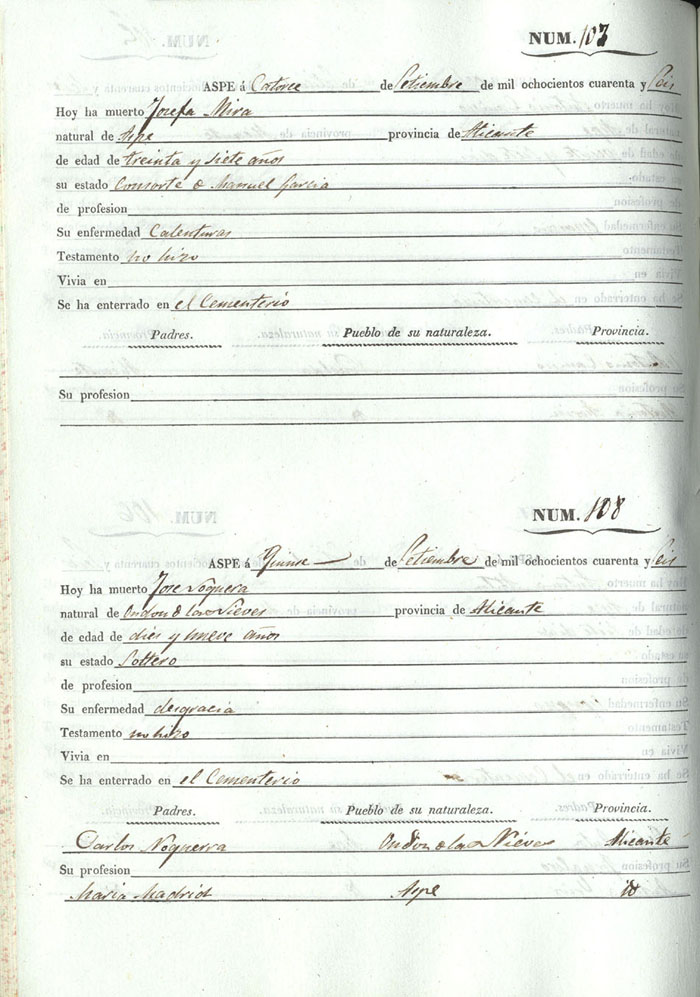 NUM. 107
ASPE á Catorce de Setiembre de mil ochocientos cuarenta y Seis
Hoy ha muerto Josefa Mira
natural de Aspe provincia de Alicante
de edad de treinta y siete años
su estado Consorte de Manuel Garcia
de profesion
Su enfermedad Calenturas
Testamento no hizo
Vivia en
Se ha enterrado en el Cementerio
Padres. Pueblo de su naturaleza. Provincia.
Su profesion
NUM. 108
ASPE á Quinse de Setiembre de mil ochocientos cuarenta y Seis
Hoy ha muerto Jose Noguera
natural de Ondon de las Nieves provincia de Alicante
de edad de dies y nueve años
su estado Soltero
de profesion
Su enfermedad desgracia
Testamento no hizo
Vivia en
Se ha enterrado en el Cementerio
Padres. Pueblo de su naturaleza. Provincia.
Carlos Noguerra Ondon de las Niéves Alicante
Su profesion
Maria Madrid Aspe id